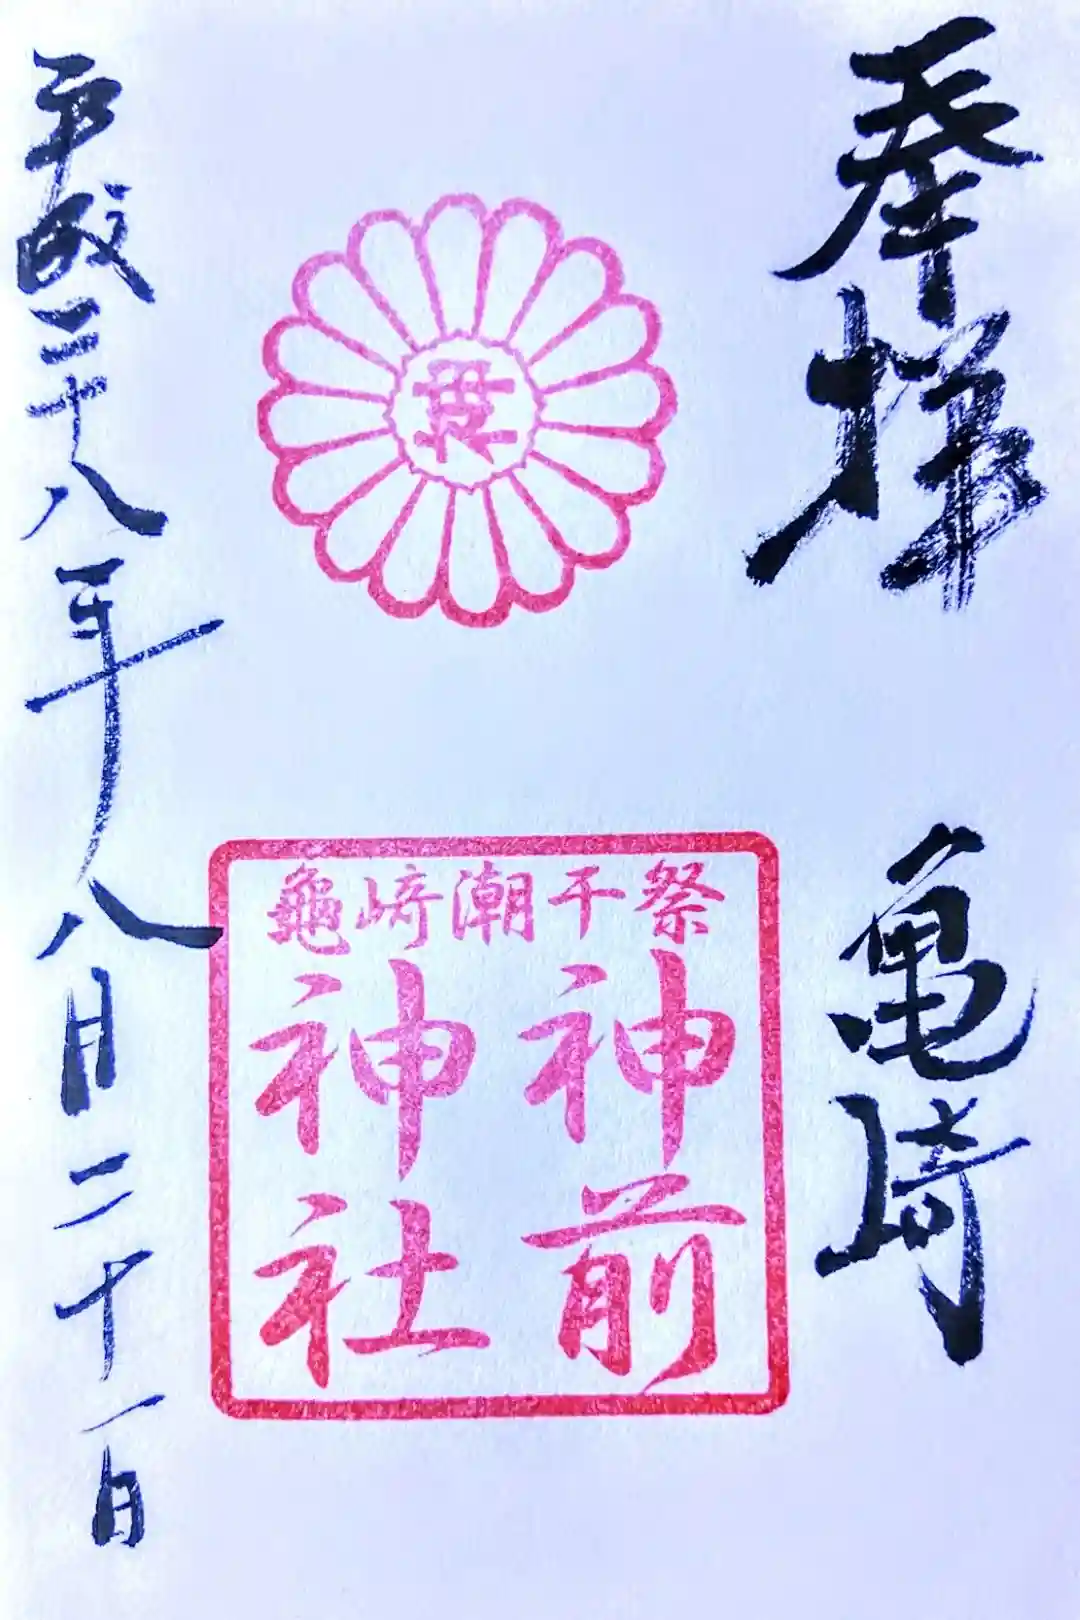 奉拝
亀崎
龜﨑潮干祭
神前
神社
平成二十八年八月二十一日